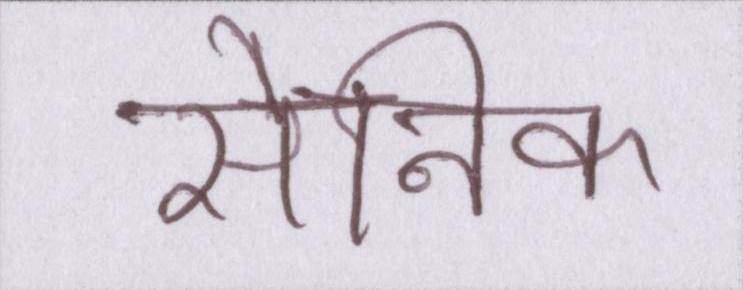 सैनिक